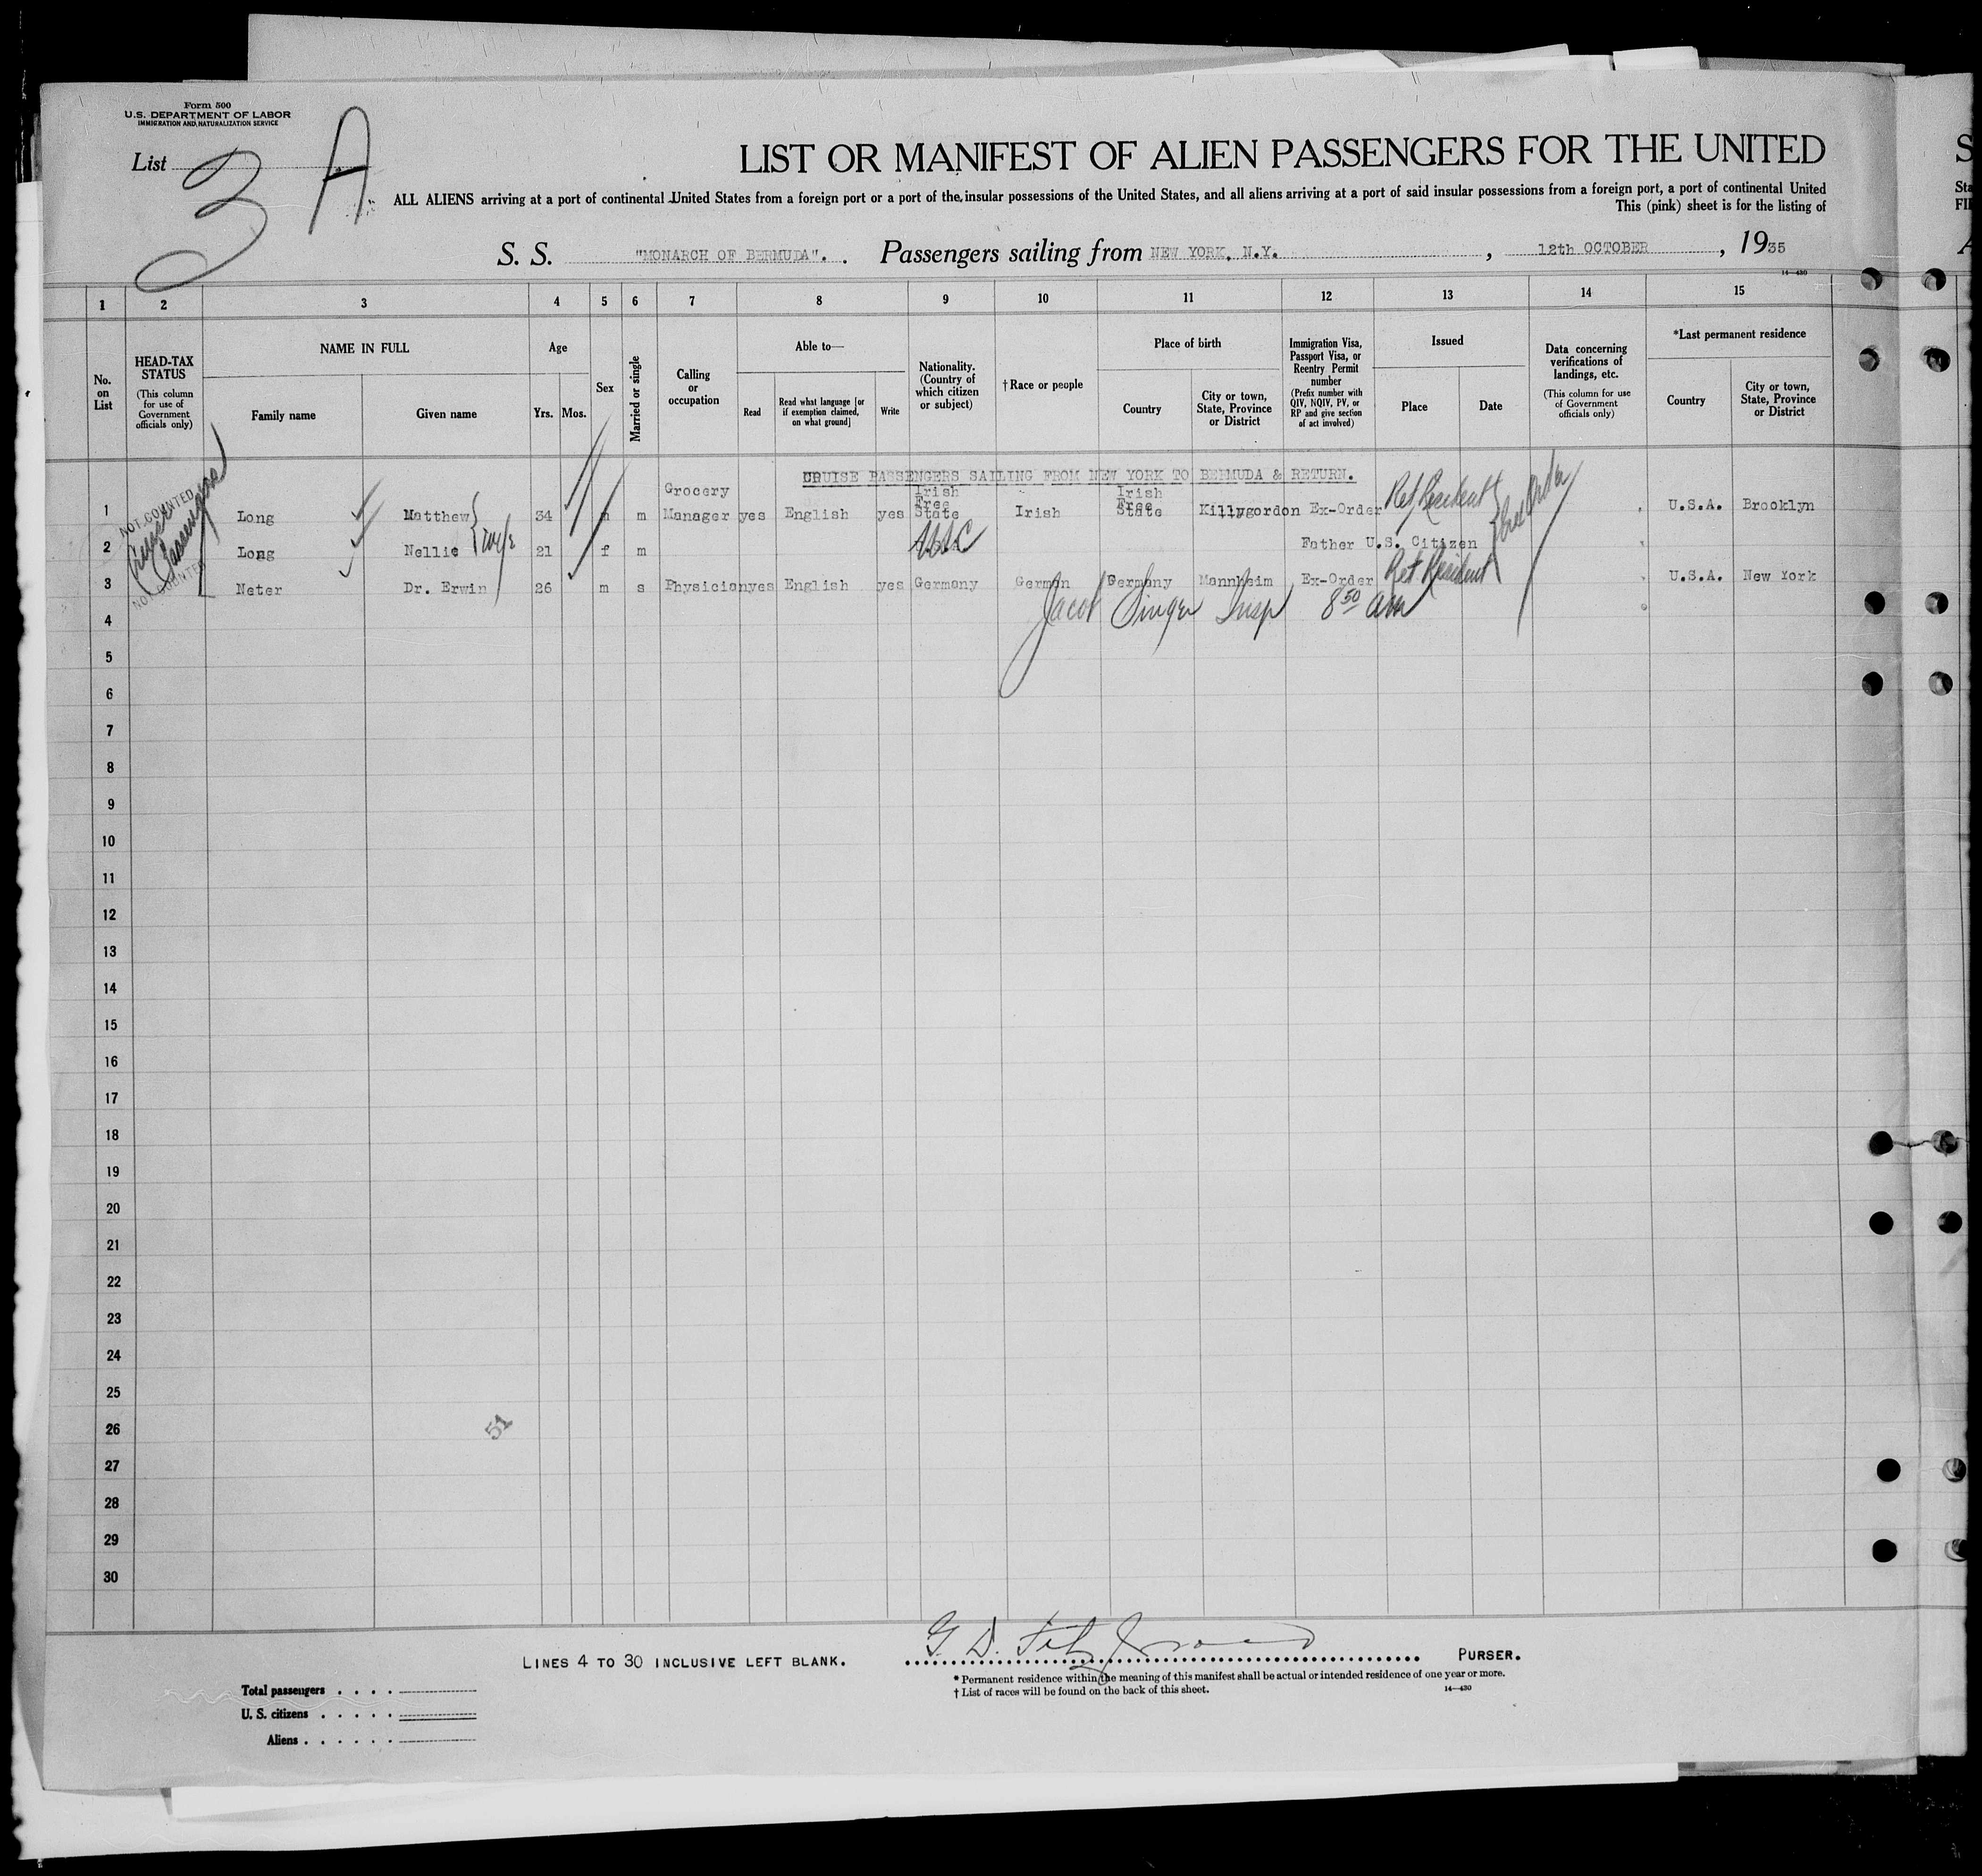 Form 500
U.S. DEPARTMENT OF LABOR
IMMIGRATION AND NATURALIZATION SERVICE
List 3 A
LIST OR MANIFEST OF ALIEN PASSENGERS FOR THE UNITED
ALL ALIENS arriving at a port of continental United States from a foreign port or a port of the insular possessions of the United States, and all aliens arriving at a port of said insular possessions from a foreign port, a port of continental United
This (pink) sheet is for the listing of
S. S. "MONARCH OF BERMUDA". Passengers sailing from NEW YORK, N.Y. , 12th OCTOBER , 1935
14—430
1 2 3 4 5 6 7 8 9 10 11 12 13 14 15
No. on List
HEAD-TAX STATUS
(This column for use of Government officials only)
NAME IN FULL
Family name
Given name
Age
Yrs. Mos.
Sex
Married or single
Calling or occupation
Able to—
Read
Read what language [or if exemption claimed, on what ground]
Write
Nationality. (Country of which citizen or subject)
†Race or people
Place of birth
Country
City or town, State, Province or District
Immigration Visa, Passport Visa, or Reentry Permit number
(Prefix number with QIV, NQIV, PV, or RP and give section of act involved)
Issued
Place
Date
Data concerning verifications of landings, etc.
(This column for use of Government officials only)
*Last permanent residence
Country
City or town, State, Province or District
CRUISE PASSENGERS SAILING FROM NEW YORK TO BERMUDA & RETURN.
NOT COUNTED
Cruise Passengers
NOT COUNTED
1 Long Matthew 34 m m Grocery Manager yes English yes Irish Free State Irish Irish Free State Killygordon Ex-Order Ret Resident U.S.A. Brooklyn
2 Long Nellie wife 21 f m USC Father U.S. Citizen
3 Neter Dr. Erwin 26 m s Physician yes English yes Germany German Germany Mannheim Ex-Order Ret Resident U.S.A. New York
Ex Order
Jacob Singer Insp 8 50 am
4
5
6
7
8
9
10
11
12
13
14
15
16
17
18
19
20
21
22
23
24
25
26
27
28
29
30
51
LINES 4 TO 30 INCLUSIVE LEFT BLANK.
G. D. Fitzgerald PURSER.
* Permanent residence within the meaning of this manifest shall be actual or intended residence of one year or more.
† List of races will be found on the back of this sheet.
14—430
Total passengers
U. S. citizens
Aliens
S
Sta
FI
A